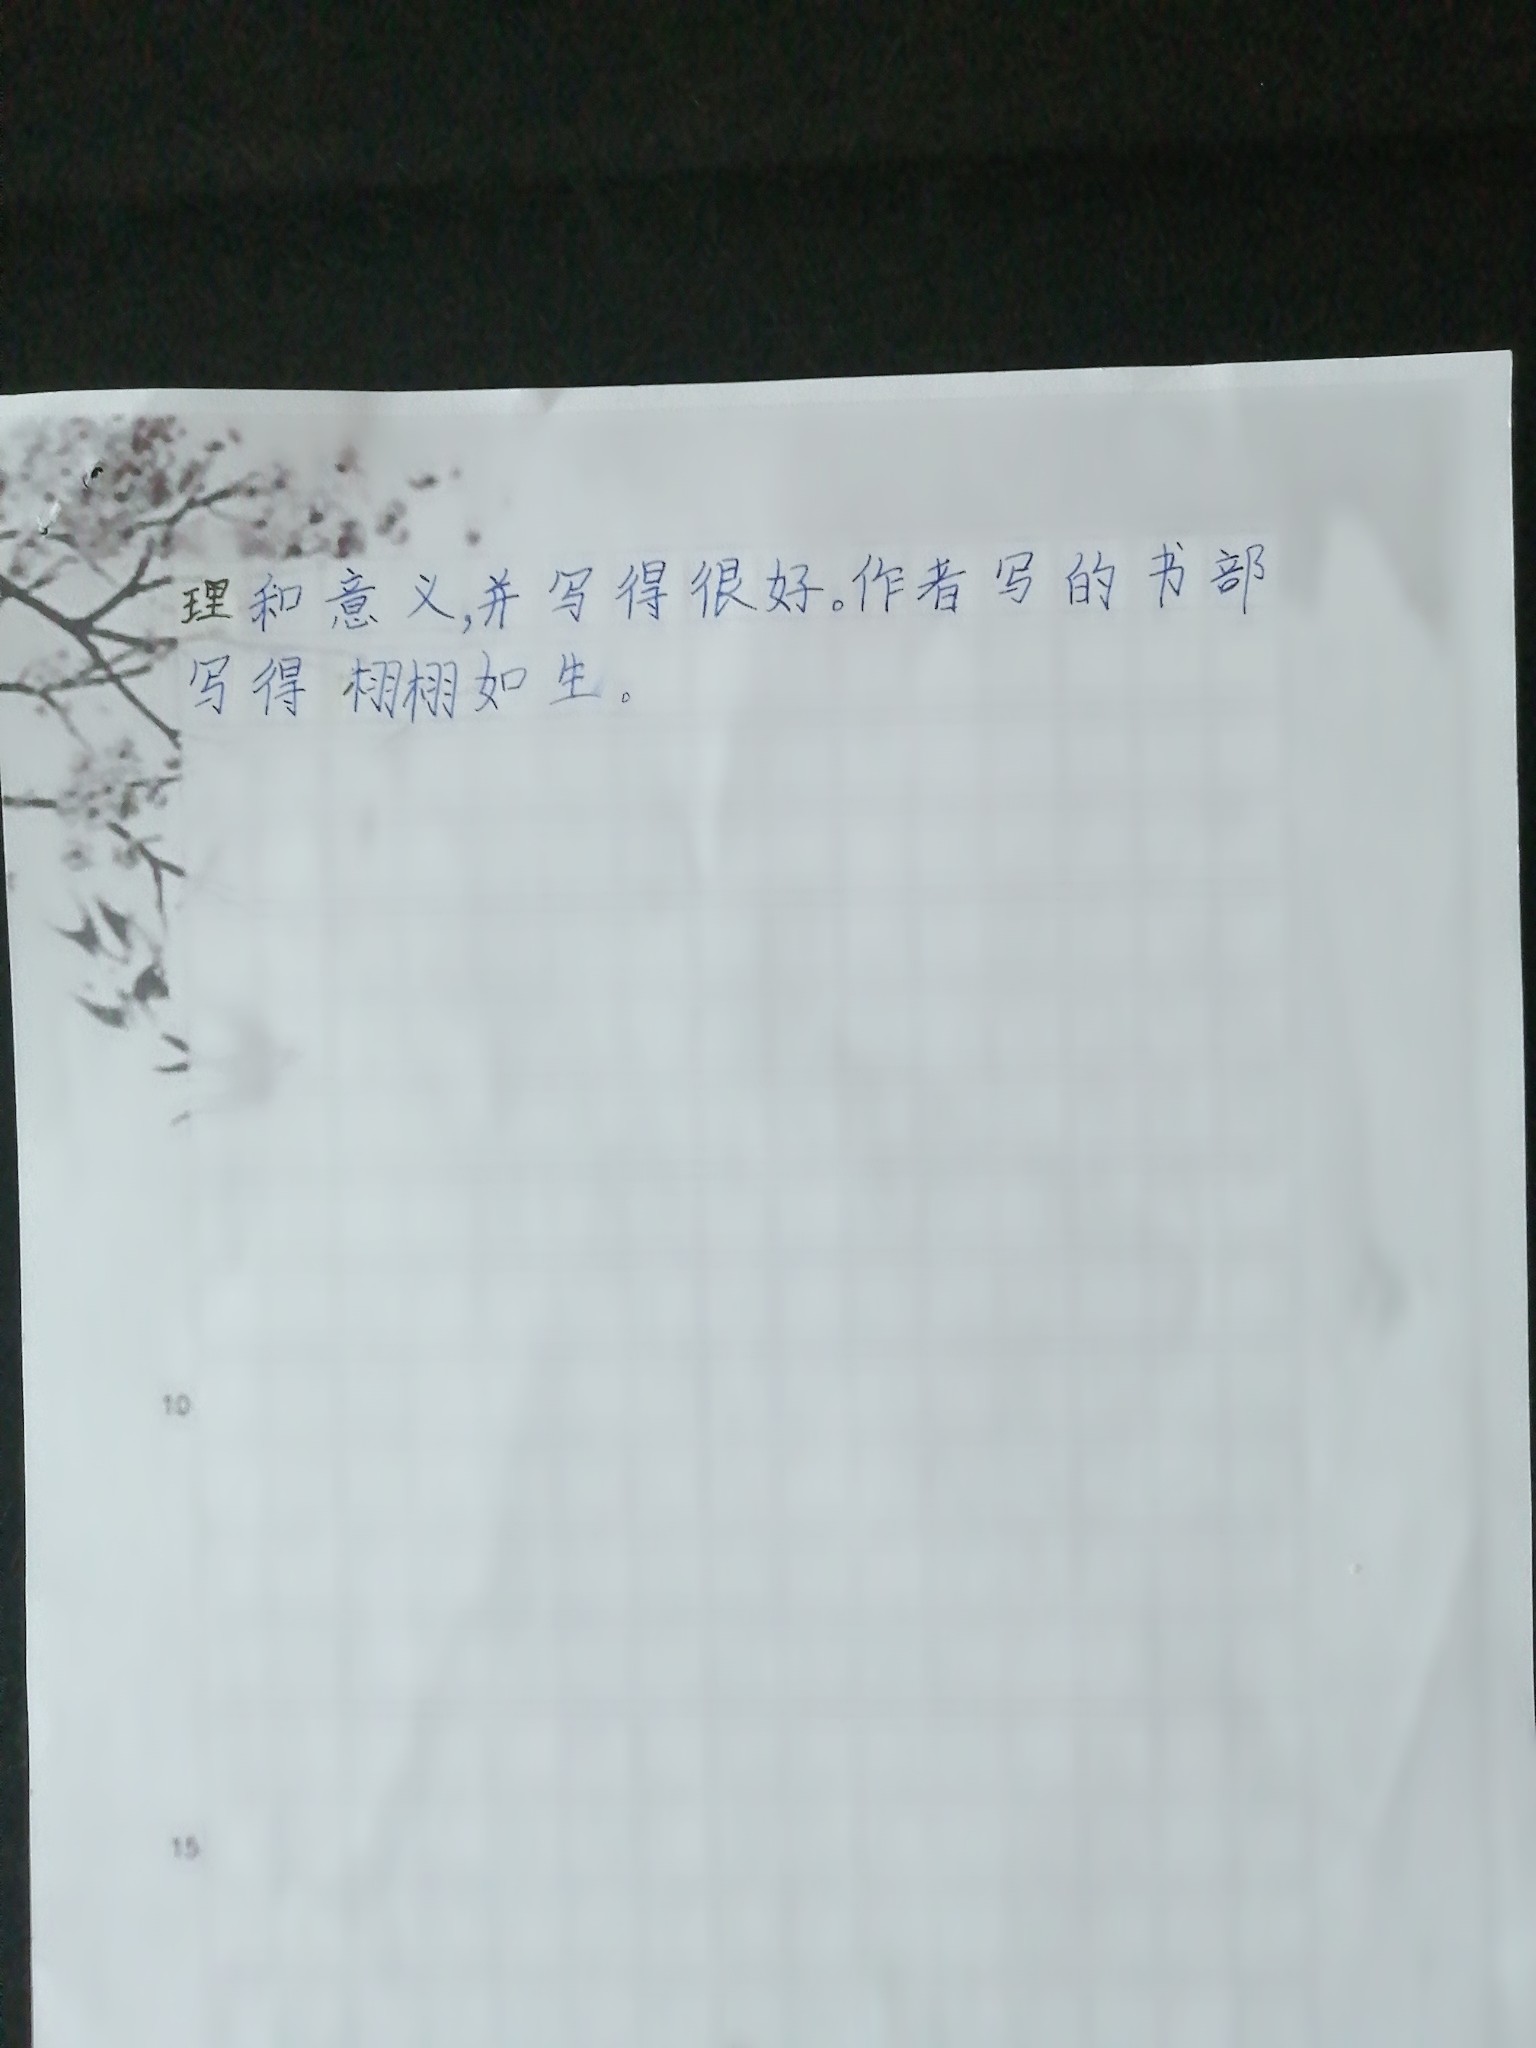 理和意义,并写得很好。作者写的书部
写得栩栩如生。
10
15